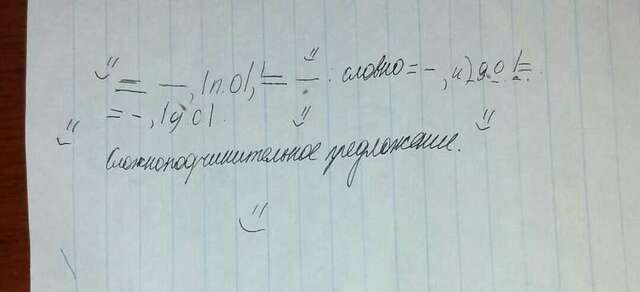 = —, |п.о|, |= — : словно = –, и |д.о.|=
= –, |д.о|.
Сложноподчинительное предложение.